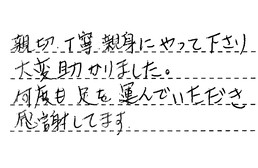 親切 丁寧 親身にやって下さり
大変助かりました。
何度も足を運んでいただき
感謝してます